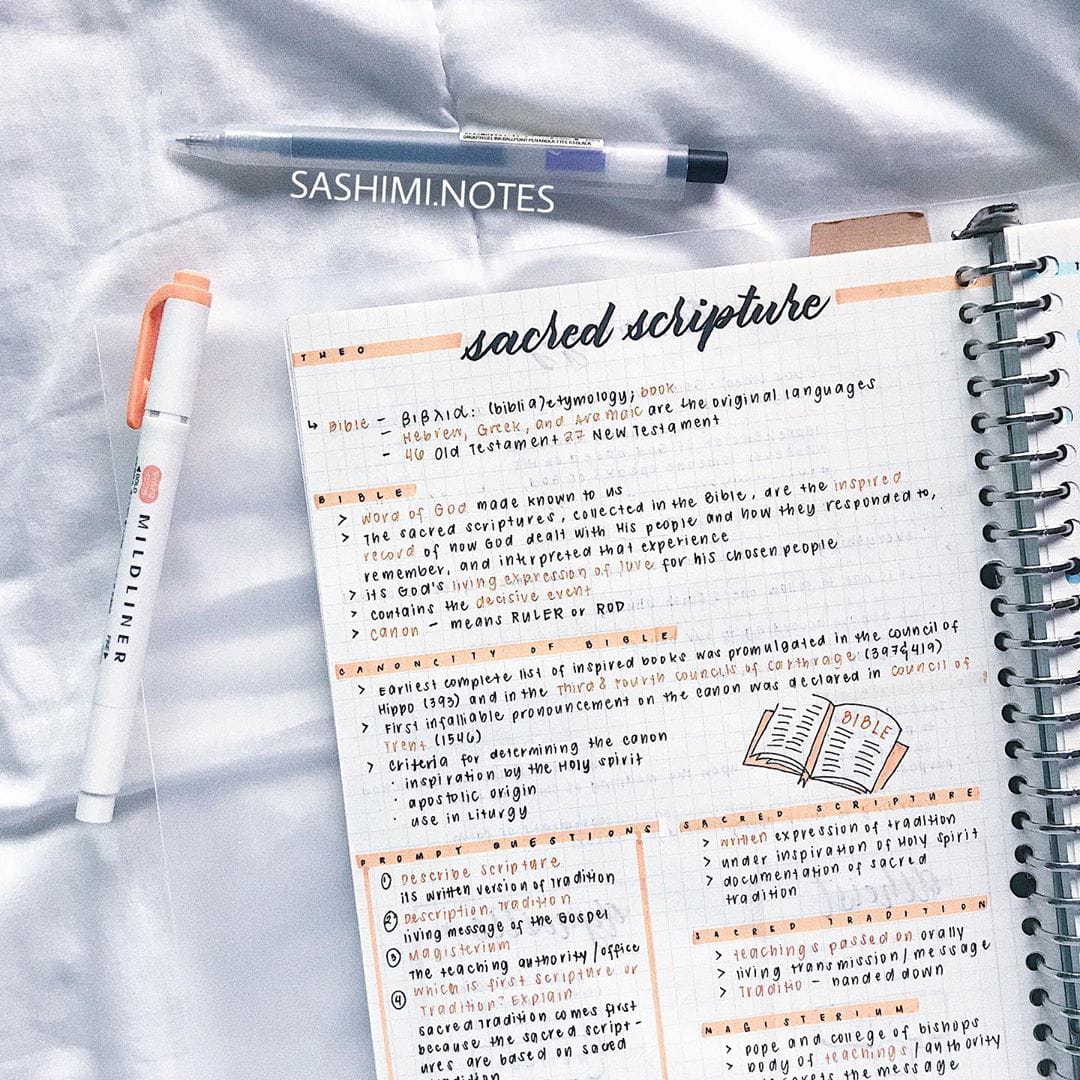 SMOOTH GEL INK BALLPOINT PEN KNOCK TYPE 0.5 BLACK
SASHIMI.NOTES
MILDLINER
BOLD
FINE
THEO
sacred scripture
↳ Bible - βιβλια: (biblia) etymology; book
- Hebrew, Greek, and Aramaic are the original languages
- 46 Old Testament 27 New Testament
BIBLE
> word of God made known to us
> The sacred scriptures, collected in the Bible, are the inspired
record of how God dealt with His people and how they responded to,
remember, and interpreted that experience
> its God's living expression of love for his chosen people
> contains the decisive event
> canon - means RULER or ROD
CANONCITY OF BIBLE
> Earliest complete list of inspired books was promulgated in the council of
Hippo (393) and in the Third & Fourth councils of Carthrage (397&419)
> First infalliable pronouncement on the canon was declared in council of
Trent (1546)
> criteria for determining the canon
· inspiration by the Holy spirit
· apostolic origin
· use in Liturgy
BIBLE
PROMPT QUESTIONS
① Describe Scripture
its written version of Tradition
② Description, Tradition
living message of the Gospel
③ Magisterium
The teaching authority/office
④ which is first Scripture or
Tradition? Explain
sacred Tradition comes first
because the sacred script-
ures are based on sacred
tradition
SACRED SCRIPTURE
> written expression of tradition
> under inspiration of Holy Spirit
> documentation of sacred
tradition
SACRED TRADITION
> teachings passed on orally
> living transmission/message
> Traditio - handed down
MAGISTERIUM
> pope and college of bishops
> body of teachings/authority
the message